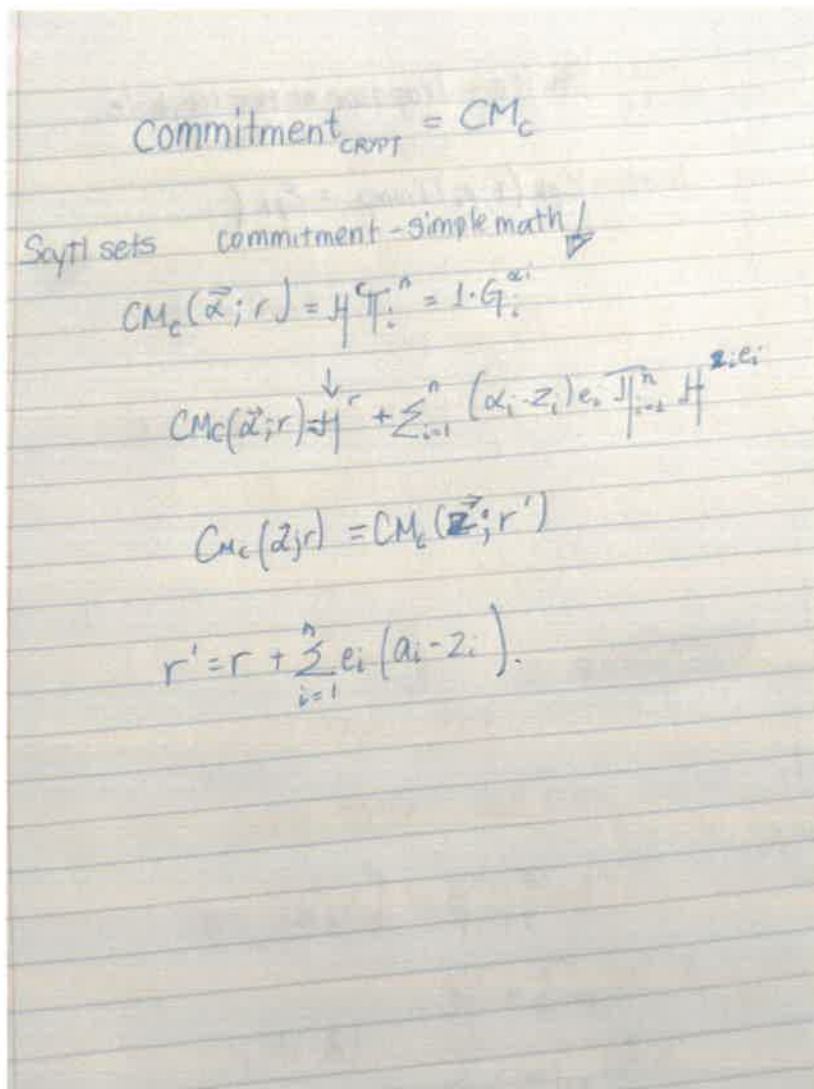 Commitment_CRYPT = CM_c
Scytl sets commitment - simple math!
CM_c(α⃗; r) = H^c ∏_i^n = 1·G_i^αi
↓
CM_c(α⃗; r) = H^r + Σ_{i=1}^n (α_i - z_i) e_i ∏_{i=1}^n H^{z_i e_i}
CM_c(α⃗; r) = CM_c(z⃗; r')
r' = r + Σ_{i=1}^n e_i (a_i - z_i).